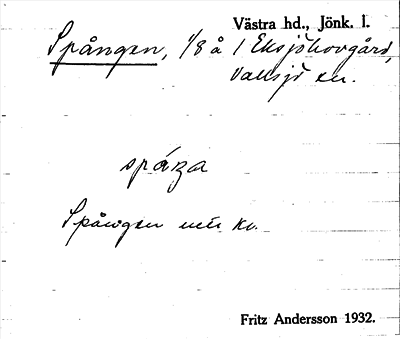 Västra hd., Jönk. l.
Spången, 1/8 å 1 Eksjöhovgård,
Vallsjö sn.
spåza
Spången
Fritz Andersson 1932.